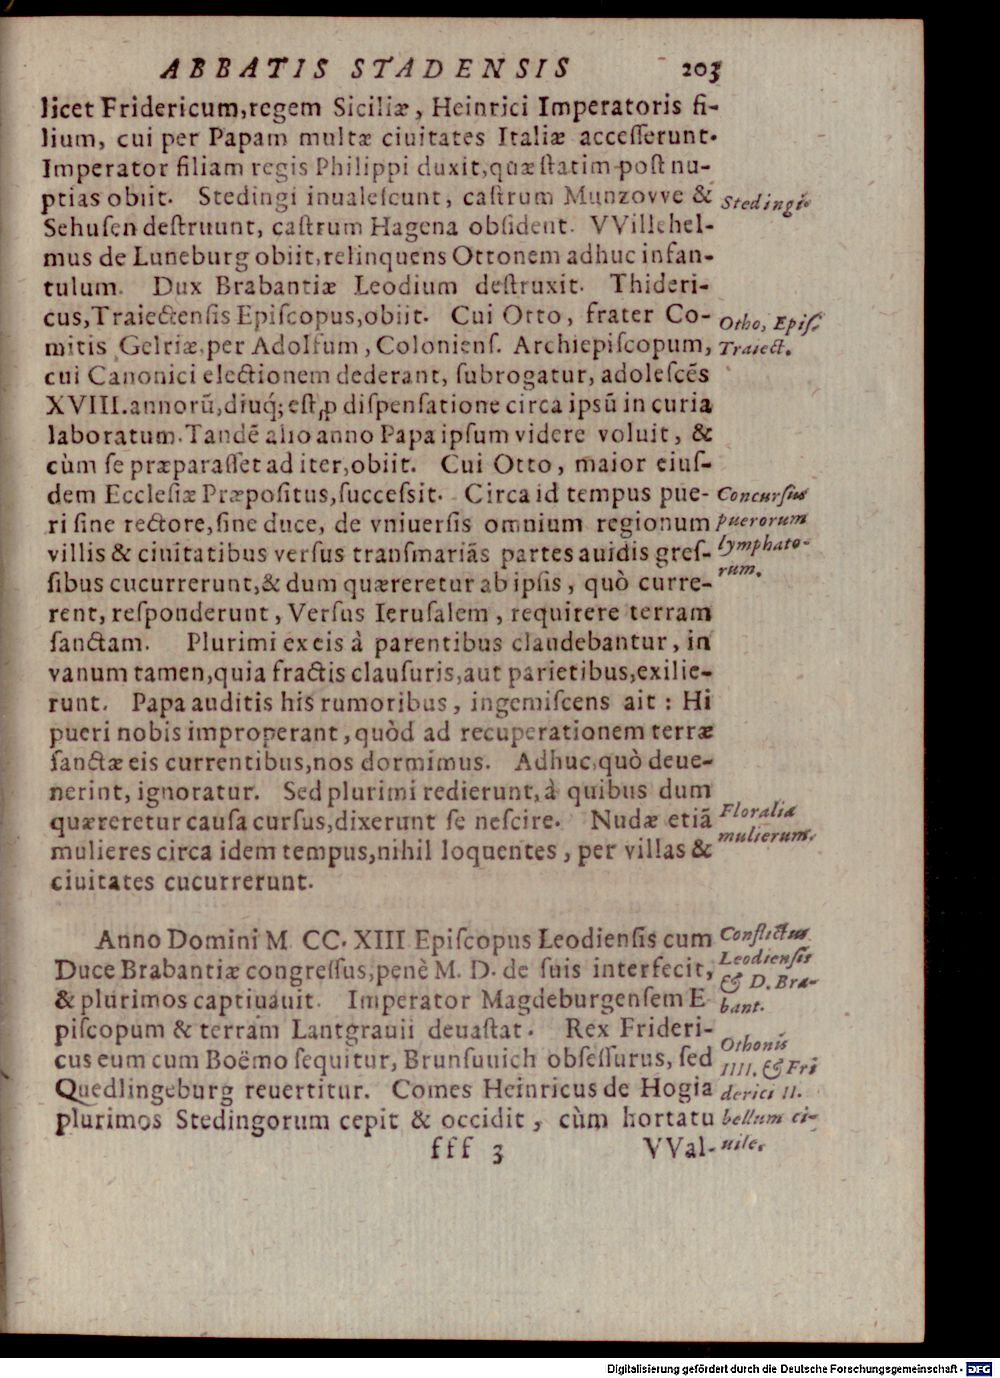 ABBATIS STADENSIS 203
licet Fridericum, regem Siciliæ, Heinrici Imperatoris fi-
lium, cui per Papam multæ ciuitates Italiæ acceſſerunt.
Imperator filiam regis Philippi duxit, quæ ſtatim poſt nu-
ptias obiit. Stedingi inualeſcunt, caſtrum Munzovve &
Stedingi.
Sehuſen deſtruunt, caſtrum Hagena obſident. VVillehel-
mus de Luneburg obiit, relinquens Ottonem adhuc infan-
tulum. Dux Brabantiæ Leodium deſtruxit. Thideri-
cus, Traiectenſis Epiſcopus, obiit. Cui Otto, frater Co-
Otho, Epiſ.
mitis Gelriæ, per Adolfum, Colonienſ. Archiepiſcopum,
Traiect.
cui Canonici electionem dederant, ſubrogatur, adoleſcẽs
XVIII. annorũ, diuq́; eſt ꝓ diſpenſatione circa ipsũ in curia
laboratum. Tandẽ alio anno Papa ipſum videre voluit, &
cùm ſe præparaſſet ad iter, obiit. Cui Otto, maior eiuſ-
dem Eccleſiæ Præpoſitus, ſucceſsit. Circa id tempus pue-
Concurſus
ri ſine rectore, ſine duce, de vniuerſis omnium regionum
puerorum
villis & ciuitatibus verſus tranſmariãs partes auidis greſ-
lymphato-
ſibus cucurrerunt, & dum quæreretur ab ipſis, quò curre-
rum.
rent, reſponderunt, Verſus Ieruſalem, requirere terram
ſanctam. Plurimi ex eis à parentibus claudebantur, in
vanum tamen, quia fractis clauſuris, aut parietibus, exilie-
runt. Papa auditis his rumoribus, ingemiſcens ait : Hi
pueri nobis improperant, quòd ad recuperationem terræ
ſanctæ eis currentibus, nos dormimus. Adhuc, quò deue-
nerint, ignoratur. Sed plurimi redierunt, à quibus dum
quæreretur cauſa curſus, dixerunt ſe neſcire. Nudæ etiã
Floralia
mulieres circa idem tempus, nihil loquentes, per villas &
mulierum.
ciuitates cucurrerunt.
Anno Domini M. CC. XIII Epiſcopus Leodienſis cum
Conflictus
Duce Brabantiæ congreſſus, penè M. D. de ſuis interfecit,
Leodienſis
& plurimos captiuauit. Imperator Magdeburgenſem E
& D. Bra-
bant.
piſcopum & terram Lantgrauii deuaſtat. Rex Frideri-
cus eum cum Boëmo ſequitur, Brunſuuich obſeſſurus, ſed
Othonis
Quedlingeburg reuertitur. Comes Heinricus de Hogia
IIII. & Fri
derici II.
plurimos Stedingorum cepit & occidit, cùm hortatu
bellum ci-
fff 3 VVal-
uile.
Digitalisierung gefördert durch die Deutsche Forschungsgemeinschaft - DFG